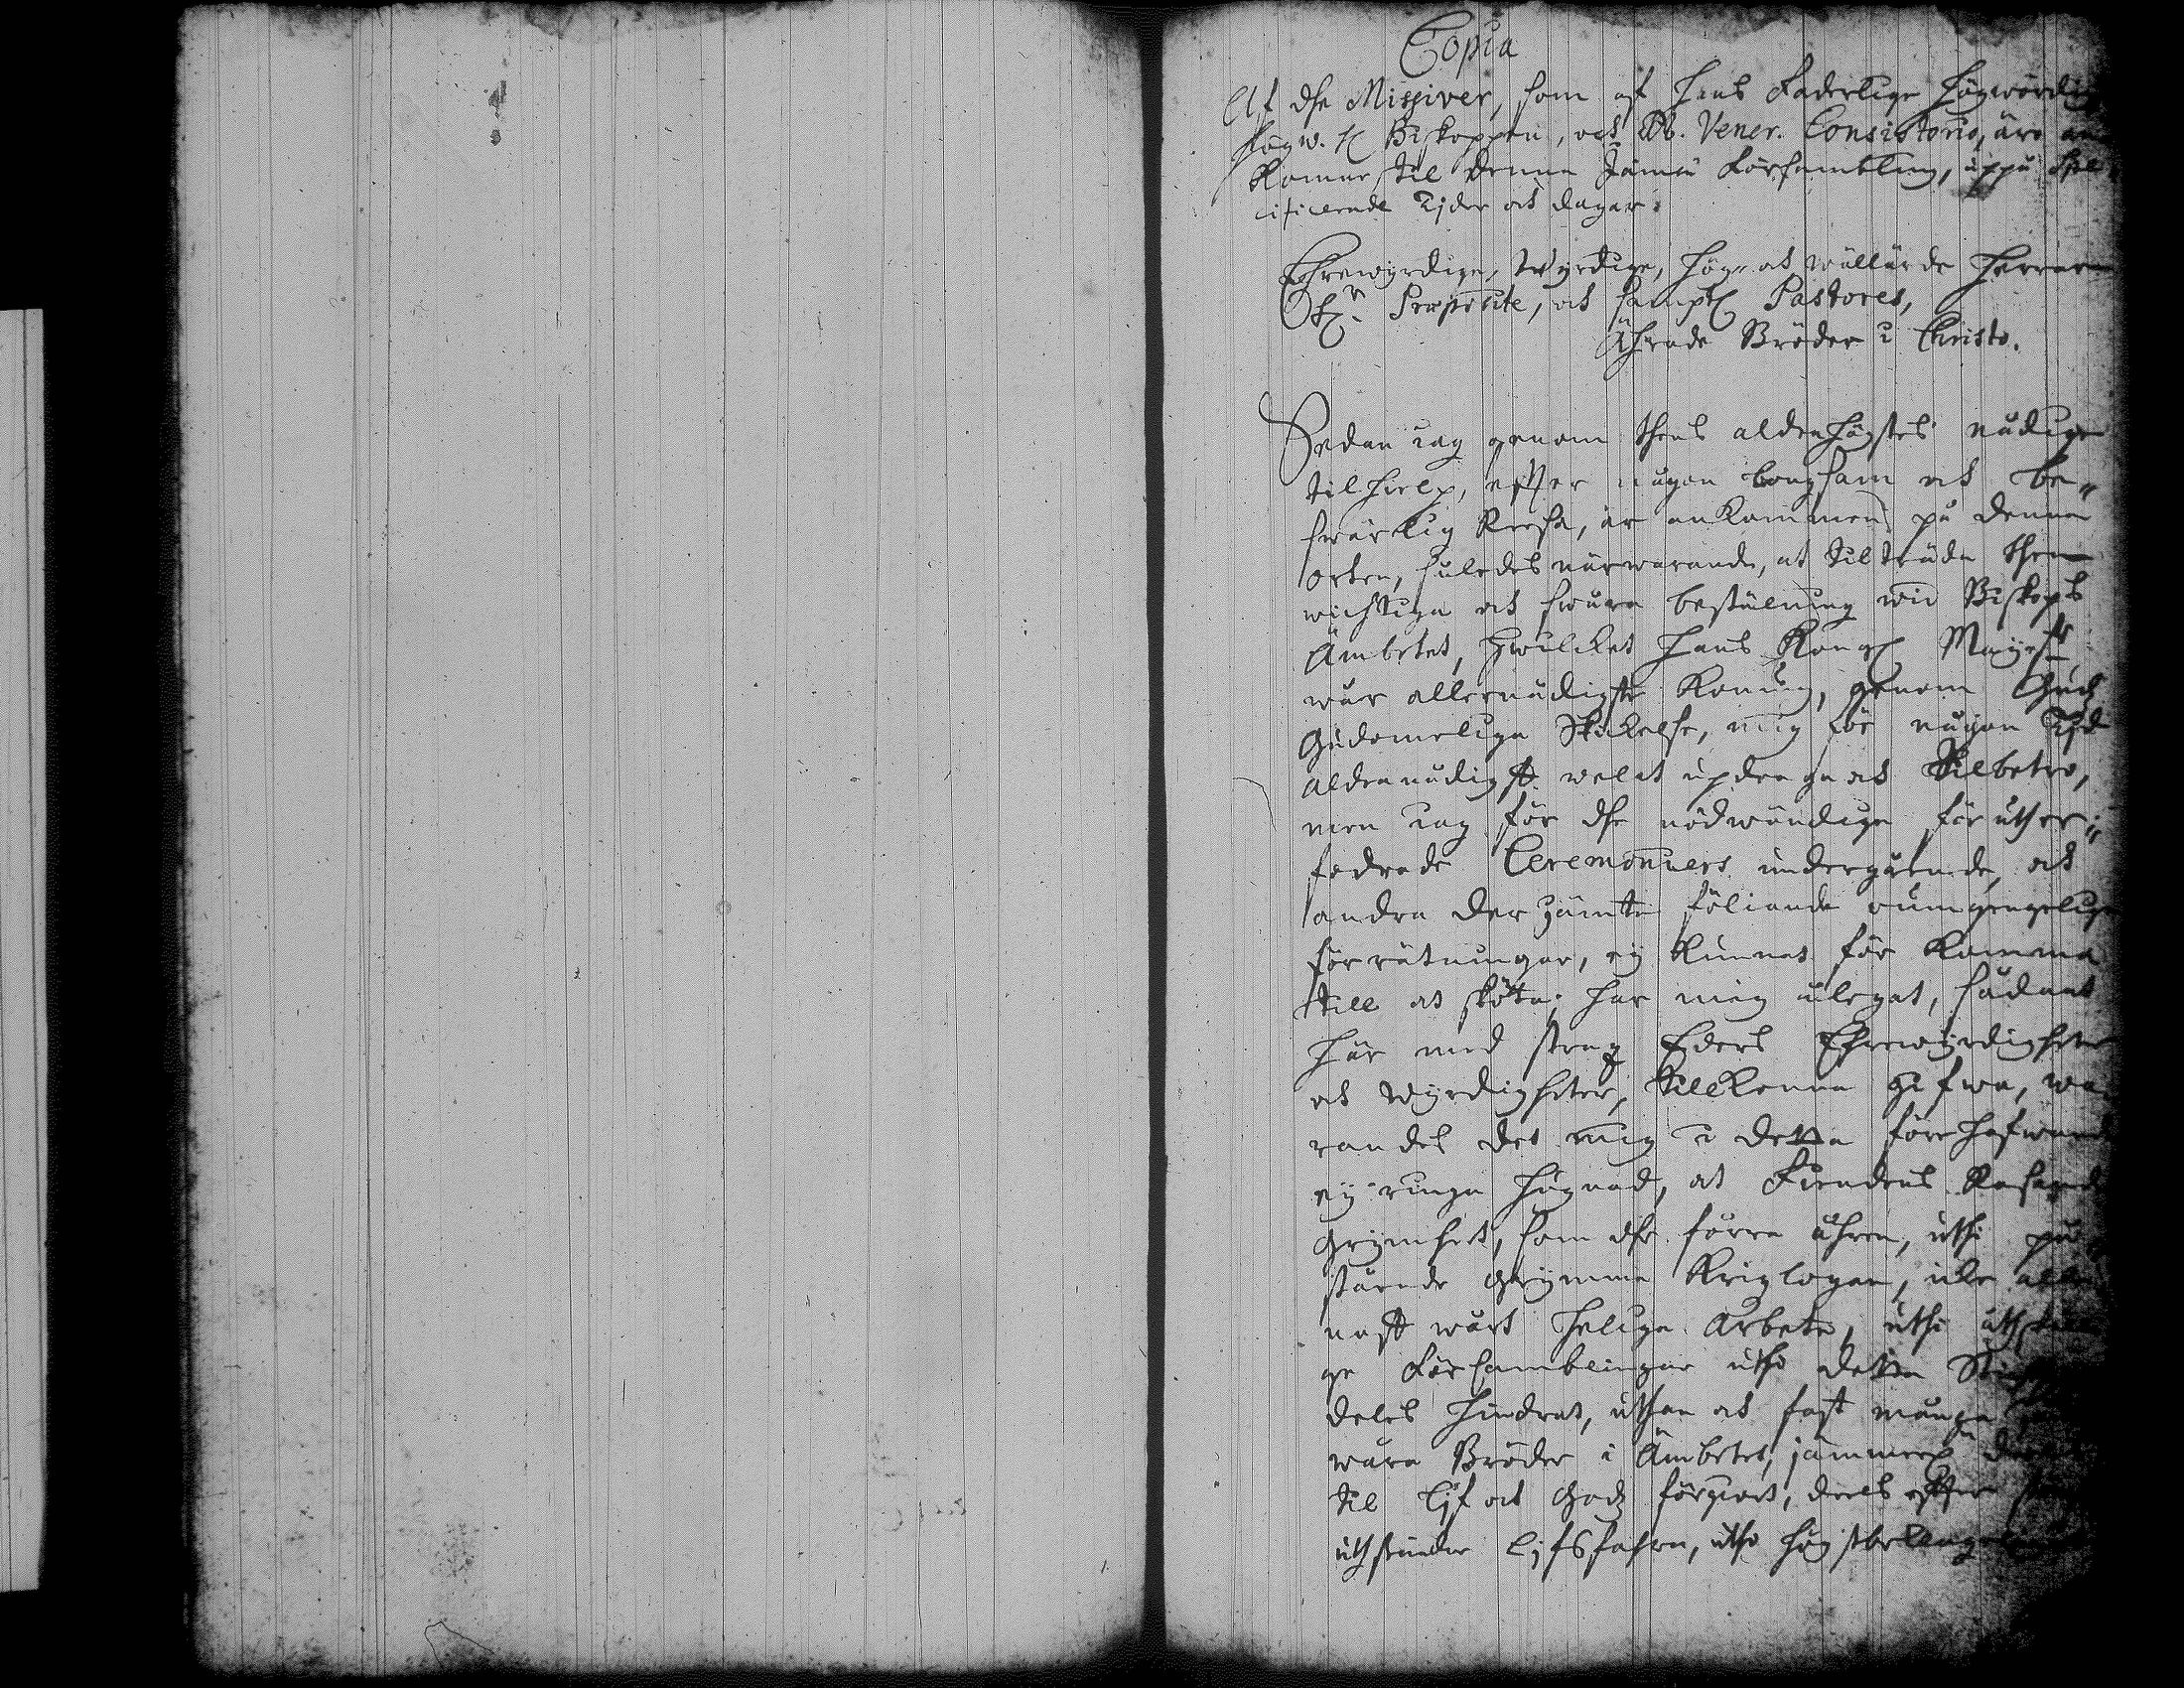 Copia
Af dhe Missiver, som af Hans Faderlige Högwördig
Högw. H Biskoppen, och Vener. Consistorio, äro an
komne til denne Försambling, uppå spe
cificerade Tijder och dagar.
Ehrewyrdige, Wyrdige, Hög- och wällärde Herrar
Hr Præposite, och sampt Pastores,
Ährade Bröder i Christo.
Sedan iag genom thens aldrahögstes nådige
tilhielp, effter någon långsam och be„
swärlig Reesa, är ankommen på denna
orten, således närwarande, at tilträda then
wichtiga och swåra beställning wid Biskops
Ämbetet, hwilcket Hans Kongl Mayst
wår allernådigste Konung, genom Gudz
Gudomeliga Skickelse, mig för någon Tijd
aldranådigst welat updraga och tilbetro,
men iag för dhe nödwändige för uther„
fodrade Ceremoniers undergående, och
andra der jämte föliande oumgengelige
förrätningar, ey kunnat för komma
till at sköta; har mig ålegat, sådant
här med strax Eders Ehrewyrdigheter
och wyrdigheter, tillkenna gifwa, wa
randes det mig i detta förehafwand
ey ringa hugnad, at Fiendens Rasand
Grymhet, som dhe förra åhren, uthi på
stående grymma Krigzlogan, icke alle
nast wårt helige Arbete, uthi
ge Församblingar uthi detta
deles hindrat, uthan och fast många
wåra Bröder i Ämbetet, jämmerl
til Lijf och Godz förgiort, deels effter
uthstundne Lijfsfahra, uthi